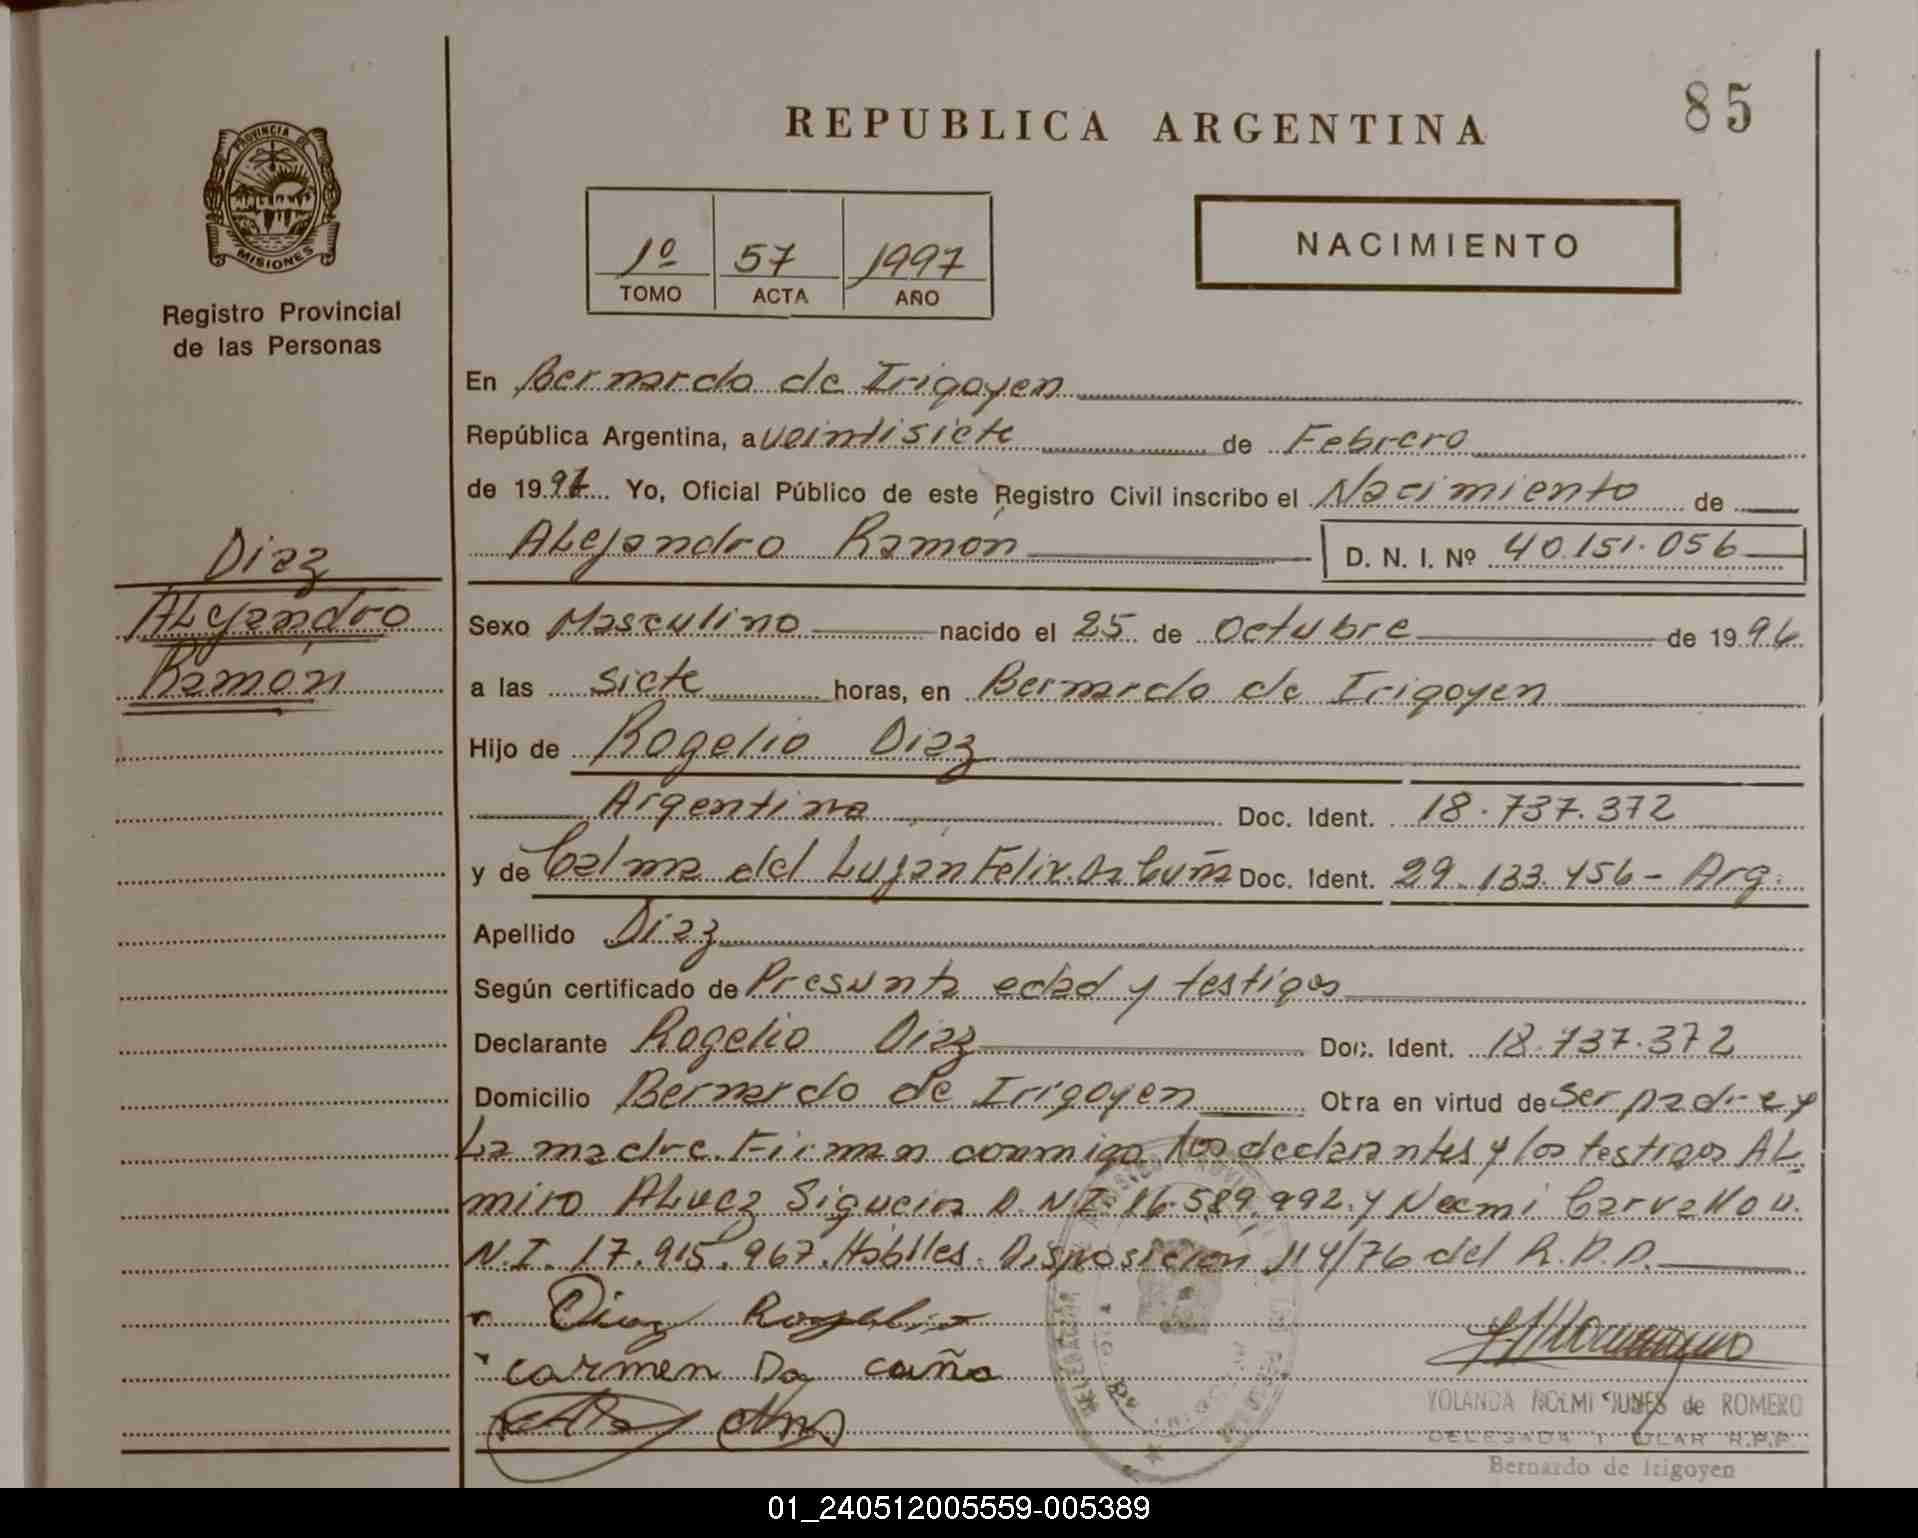 REPUBLICA ARGENTINA
85
PROVINCIA DE
MISIONES
Registro Provincial
de las Personas
1º 57 1997
TOMO ACTA AÑO
NACIMIENTO
En Bernardo de Irigoyen
República Argentina, a veintisiete de Febrero
de 1997 Yo, Oficial Público de este Registro Civil inscribo el Nacimiento de
Alejandro Ramón D. N. I. Nº 40.151.056
Diaz
Alejandro
Ramón
Sexo Masculino nacido el 25 de Octubre de 1996
a las siete horas, en Bernardo de Irigoyen
Hijo de Rogelio Diaz
Argentina Doc. Ident. 18.737.372
y de Celma del Luján Felix Da Cuña Doc. Ident. 29.133.456 - Arg.
Apellido Diaz
Según certificado de Presunta edad y testigos
Declarante Rogelio Diaz Doc. Ident. 18.737.372
Domicilio Bernardo de Irigoyen Obra en virtud de ser padre y
La madre. Firman conmigo los declarantes y los testigos AL
miro ALvez Sigueira D.N.I. 16.589.992 y Noemi Carvallo D.
N.I. 17.915.967. Hábiles. Disposición 114/76 del R.P.P.
Diaz Rogelio
carmen Da cuña
YOLANDA NOEMI de ROMERO
DELEGADA TITULAR R.P.P.
Bernardo de Irigoyen
01_240512005559-005389